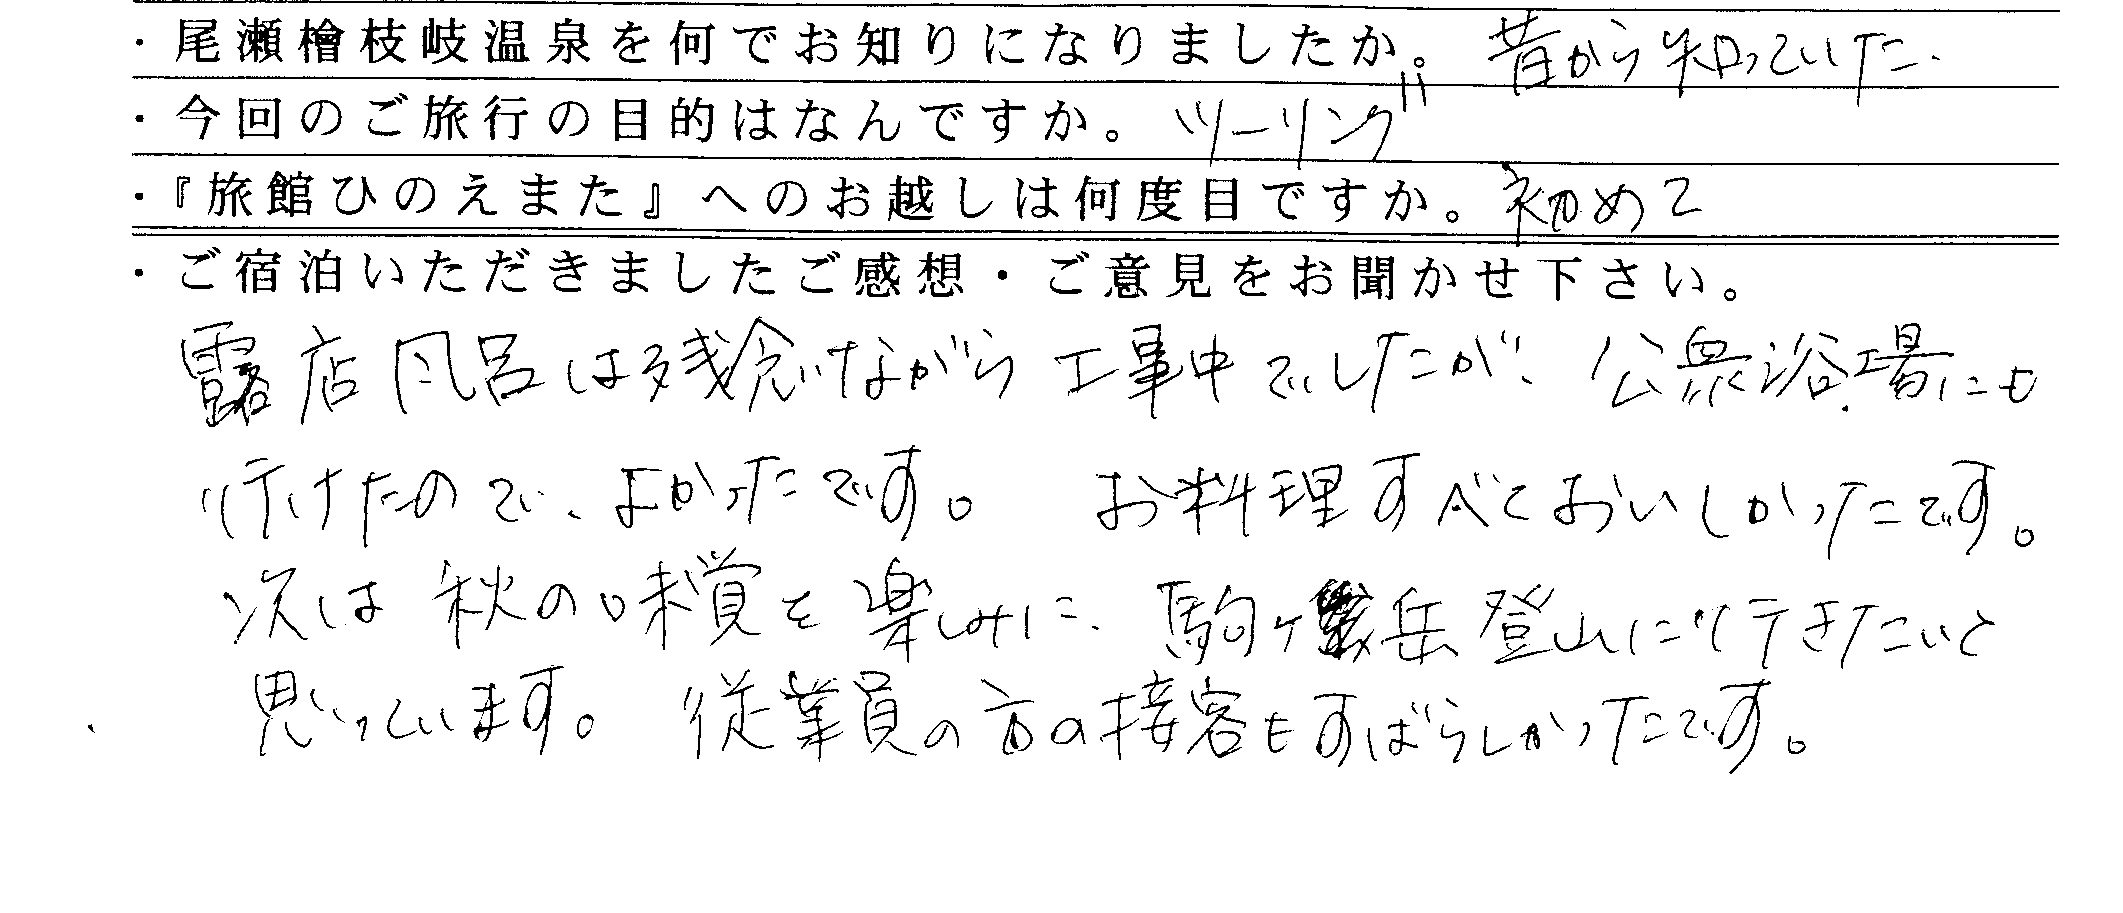 ・尾瀬檜枝岐温泉を何でお知りになりましたか。 昔から知っていた.
・今回のご旅行の目的はなんですか。 ツーリング
・『旅館ひのえまた』へのお越しは何度目ですか。 初めて
・ご宿泊いただきましたご感想・ご意見をお聞かせ下さい。
露店風呂は残念ながら工事中でしたが、公衆浴場にも
行けたので、よかったです。 お料理すべておいしかったです。
次は秋の味覚を楽しみに、駒ヶ岳登山に行きたいと
思っています。 従業員の方の接客もすばらしかったです。